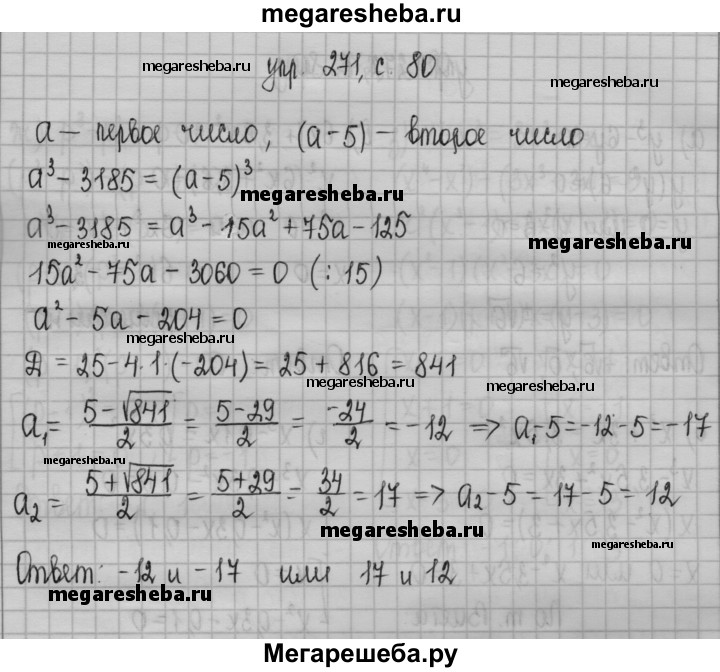 megaresheba.ru
megaresheba.ru упр 271, с 80 megaresheba.ru
a – первое число, (a-5) – второе число
a³ - 3185 = (a-5)³
megaresheba.ru
a³ - 3185 = a³ - 15a² + 75a - 125
megaresheba.ru
megaresheba.ru
15a² - 75a - 3060 = 0 (:15)
a² - 5a - 204 = 0
megaresheba.ru
Д = 25 - 4·1·(-204) = 25 + 816 = 841
megaresheba.ru
megaresheba.ru
a₁ = (5-√841)/2 = (5-29)/2 = -24/2 = -12 => a₁-5 = -12-5 = -17
megaresheba.ru
a₂ = (5+√841)/2 = (5+29)/2 = 34/2 = 17 => a₂-5 = 17-5 = 12
megaresheba.ru
megaresheba.ru
Ответ: -12 и -17 или 17 и 12
megaresheba.ru
Мегарешеба.ру